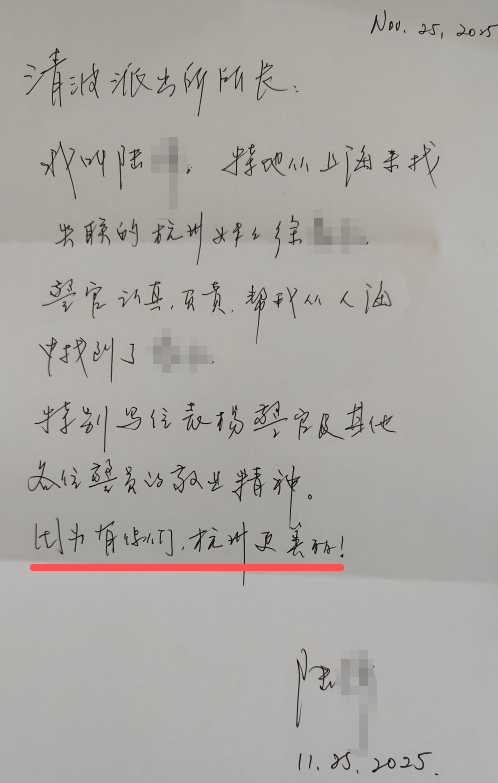 Nov. 25, 2025
清波派出所所长：
我叫陆 。特地从上海来找
失联的杭州女士徐 .
警官认真.负责.帮我从人海
中找到了 .
特别写信表扬警官及其他
各位警员的敬业精神。
因为有你们,杭州更美丽!
陆
11.25.2025.